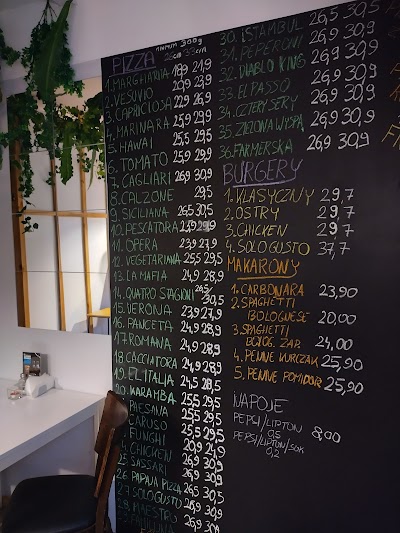 PIZZA
26cm 33cm
1. MARGHARITA 18,9 21,9
2. VESUVIO 20,9 23,9
3. CAPRICIOSA 22,9 26,9
4. MARINARA 25,9 29,9
5. HAWAI 25,5 29,5
6. TOMATO 25,9 29,9
7. CAGLIARI 26,9 30,9
8. CALZONE 29,5
9. SICILIANA 26,5 30,5
10. PESCATORA
11. OPERA 23,9 27,9
12. VEGETARIANA 25,5 29,5
13. LA MAFIA 24,9 28,9
14. QUATRO STAGIONI 26,5 30,5
15. VERONA 23,9 27,9
16. PANCETA 24,9 28,9
17. ROMANA 24,9 28,9
18. CACCIATORA 24,9 28,9
19. EL'ITALJA 24,5 28,5
20. KARAMBA 25,5 29,5
PAESANA 25,5 29,5
CARUSO 25,5 29,5
FUNGHI 25,5 29,5
CHICKEN 20,9 24,9
SASSARI 26,9 30,9
26. PAPAVA PIZZA 26,5 30,5
27. SOLO GUSTO 26,9 30,9
MAESTRO 26,9 30,9
26,9 30,9
30. ISTAMBUL 26,5 30,5
31. PEPERONI 26,9 30,9
32. DIABLO KING 26,9 30,9
33. EL PASSO 26,9 30,9
34. CZTERY SERY 26,9 30,9
35. ZIELONA WYSPA 26,9 30,9
36. FARMERSKA 26,9 30,9
BURGERY
1. KLASYCZNY 29,7
2. OSTRY 29,7
3. CHICKEN 29,7
4. SOLO GUSTO 37,7
MAKARONY
1. CARBONARA 23,90
2. SPAGHETTI
BOLOGNESE 20,00
3. SPAGHETTI
BOLOG. ZAP. 24,00
4. PENNE KURCZAK 25,90
5. PENNE POMIDOR 25,90
NAPOJE
PEPSI/LIPTON
0,5 8,00
PEPSI/LIPTON/SOK
0,2